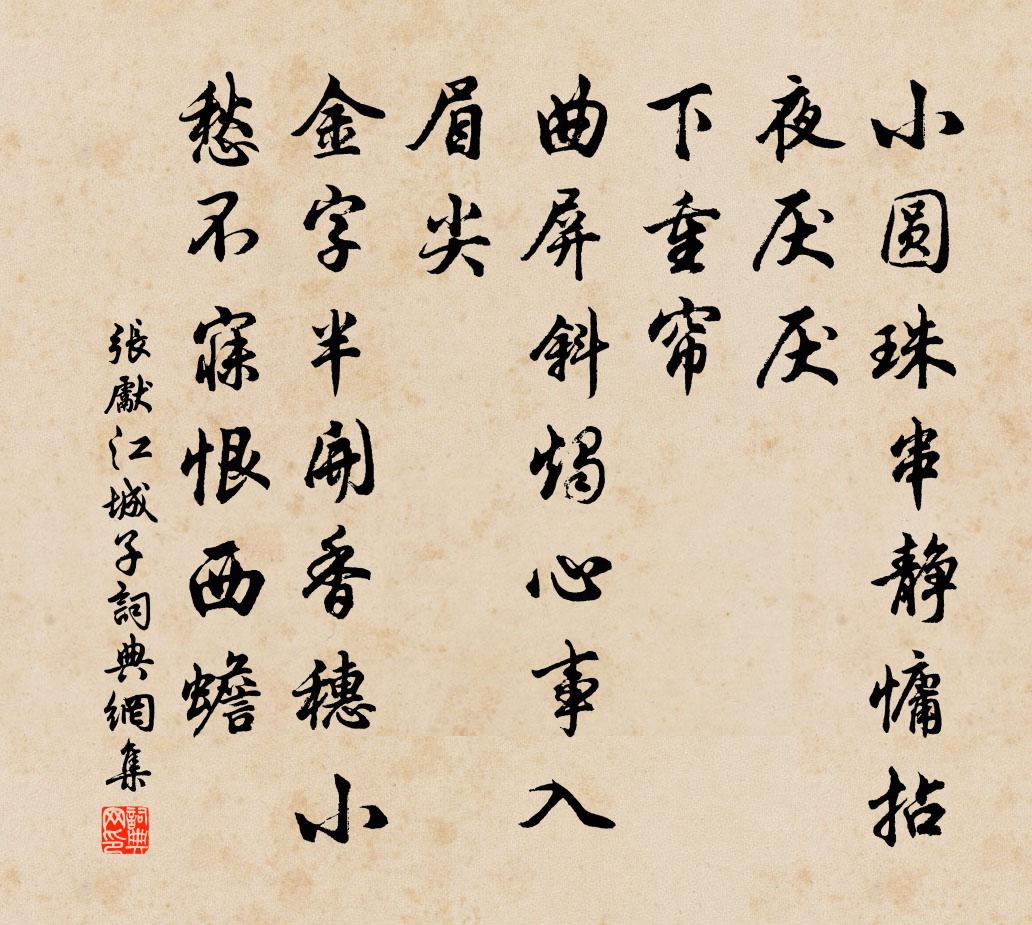 小圆珠串静慵拈
夜厌厌
下重帘
曲屏斜烛心事入
眉尖
金字半開香穗小
愁不寐恨西蟾
張獻江城子詞典網集
詞典网印